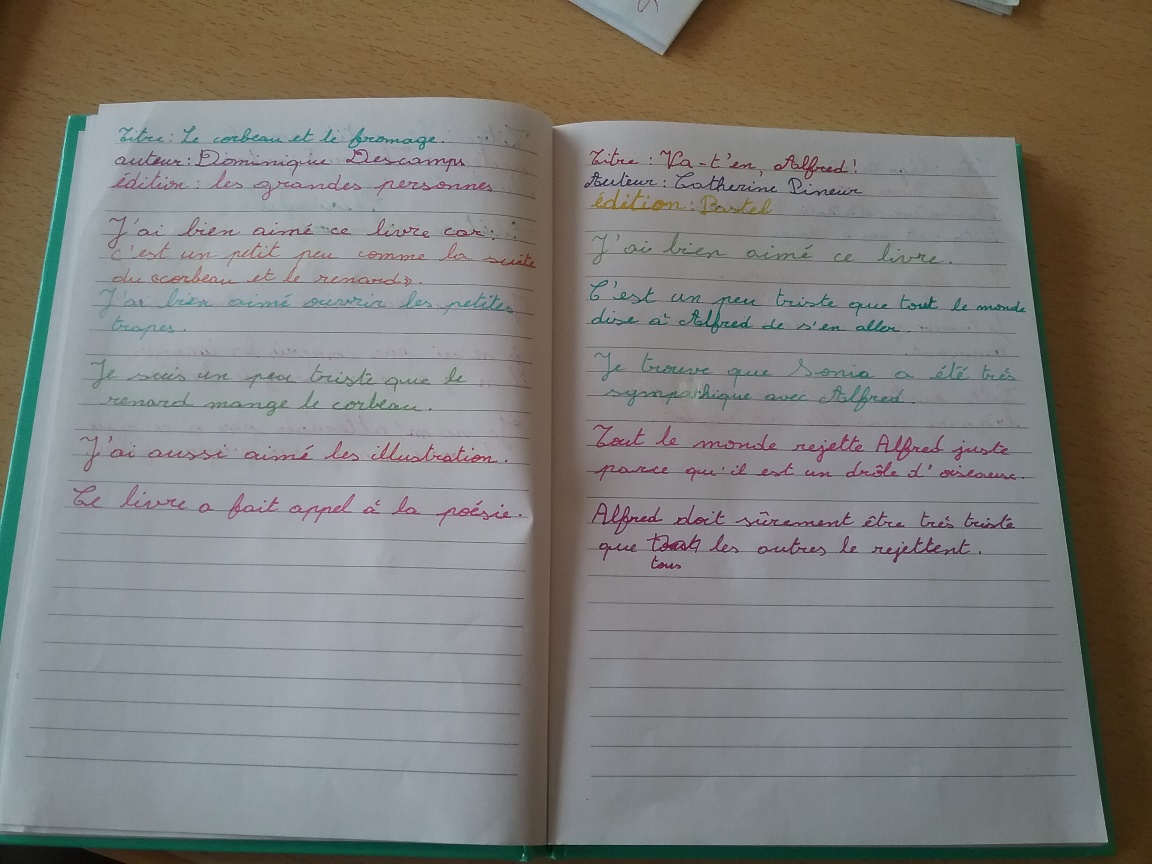 Titre : Le corbeau et le fromage.
auteur : Dominique Descamps
édition : les grandes personnes
J'ai bien aimé ce livre car :
c'est un petit peu comme la suite
du «corbeau et le renard».
J'ai bien aimé ouvrir les petites
trapes.
Je suis un peu triste que le
renard mange le corbeau.
J'ai aussi aimé les illustration.
Le livre a fait appel à la poésie.
Titre : Va-t'en, Alfred !
Auteur : Catherine Pineur
édition : Pastel
J'ai bien aimé ce livre.
C'est un peu triste que tout le monde
dise à Alfred de s'en aller.
Je trouve que Sonia a été très
sympathique avec Alfred.
Tout le monde rejette Alfred juste
parce qu'il est un drôle d'oiseau.
Alfred doit sûrement être très triste
que les autres le rejettent.
tous